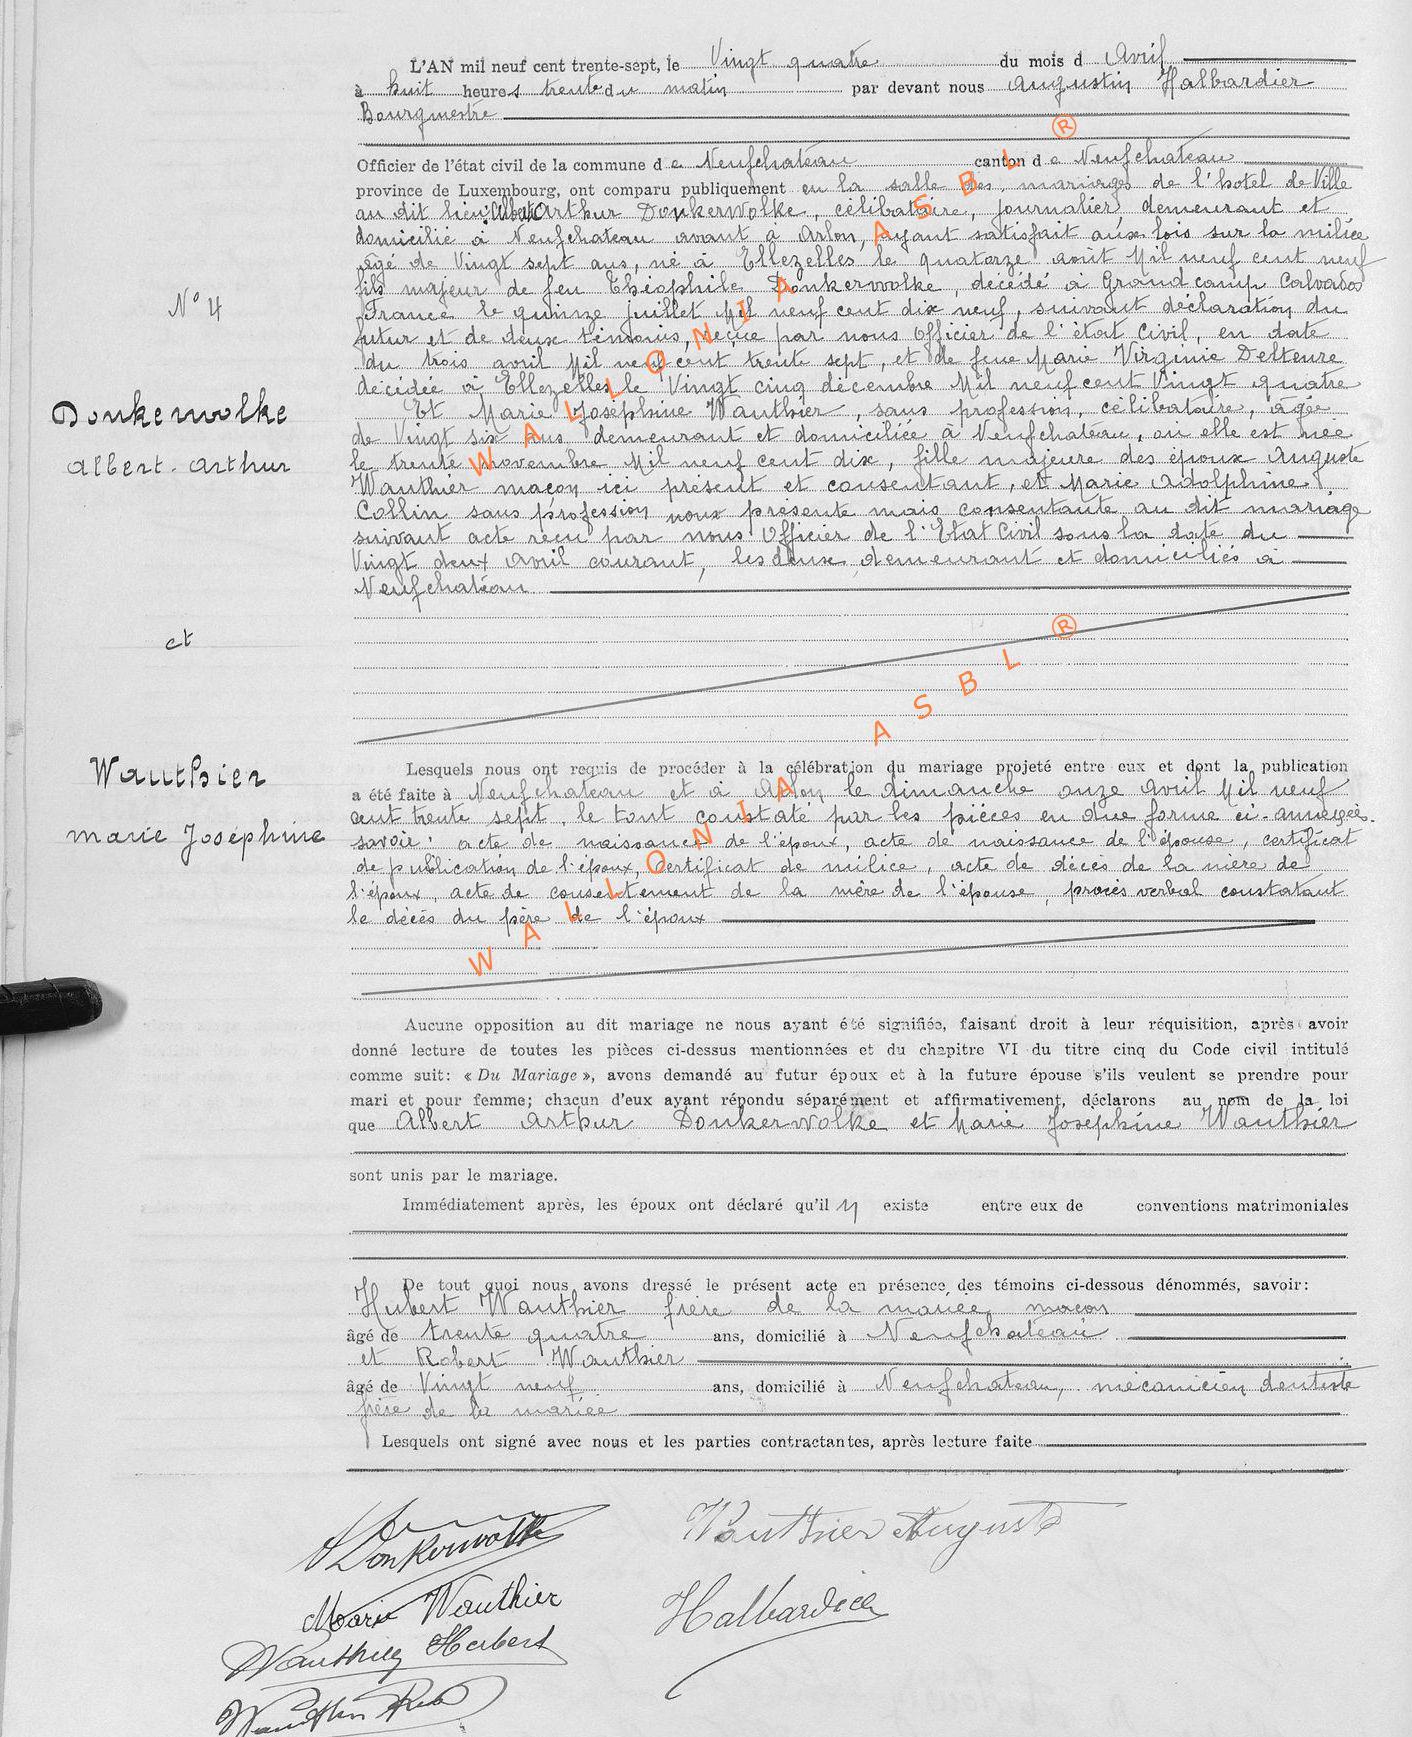 L'AN mil neuf cent trente-sept, le Vingt quatre du mois d Avril
à huit heures trente du matin par devant nous Augustin Halbardier
Bourgmestre
Officier de l'état civil de la commune de Neufchateau canton de Neufchateau
province de Luxembourg, ont comparu publiquement en la salle des mariages de l'hotel de Ville
au dit lieu: Albert Arthur Donkerwolke, célibataire, journalier, demeurant et
domicilié à Neufchateau avant à Arlon, ayant satisfait aux lois sur la milice
âgé de Vingt sept ans, né à Ellezelles le quatorze août Mil neuf cent neuf
fils majeur de feu Théophile Donkerwolke, décédé à Grandcamp Calvados
France le quinze juillet Mil neuf cent dix neuf, suivant déclaration du
futur et de deux témoins, reçue par nous Officier de l'état Civil, en date
du trois avril Mil neuf cent trente sept, et de feue Marie Virginie Delteure
décédée à Ellezelles le Vingt cinq décembre Mil neuf cent Vingt quatre
N° 4
Donkerwolke
Albert-Arthur
Et Marie Joséphine Wauthier, sans profession, célibataire, âgée
de Vingt six ans demeurant et domiciliée à Neufchateau, où elle est née
le trente novembre Mil neuf cent dix, fille majeure des époux Auguste
Wauthier maçon ici présent et consentant, et Marie Adolphine
Collin sans profession non présente mais consentante au dit mariage
suivant acte reçu par nous Officier de l'Etat Civil sous la date du
Vingt deux Avril courant, les deux demeurant et domiciliés à
Neufchateau
et
Wauthier
marie Joséphine
Lesquels nous ont requis de procéder à la célébration du mariage projeté entre eux et dont la publication
a été faite à Neufchateau et à Arlon le dimanche onze Avril Mil neuf
cent trente sept, le tout constaté par les pièces en due forme ci-annexées
savoir: acte de naissance de l'époux, acte de naissance de l'épouse, certificat
de publication de l'époux, certificat de milice, acte de décès de la mère de
l'époux, acte de consentement de la mère de l'épouse, procès verbal constatant
le décès du père de l'époux
Aucune opposition au dit mariage ne nous ayant été signifiée, faisant droit à leur réquisition, après avoir
donné lecture de toutes les pièces ci-dessus mentionnées et du chapitre VI du titre cinq du Code civil intitulé
comme suit: « Du Mariage », avons demandé au futur époux et à la future épouse s'ils veulent se prendre pour
mari et pour femme; chacun d'eux ayant répondu séparément et affirmativement, déclarons au nom de la loi
que Albert Arthur Donkerwolke et Marie Joséphine Wauthier
sont unis par le mariage.
Immédiatement après, les époux ont déclaré qu'il n existe entre eux de conventions matrimoniales
De tout quoi nous avons dressé le présent acte en présence des témoins ci-dessous dénommés, savoir:
Hubert Wauthier frère de la mariée, maçon
âgé de trente quatre ans, domicilié à Neufchateau
et Robert Wauthier
âgé de Vingt neuf ans, domicilié à Neufchateau, mécanicien dentiste
frère de la mariée
Lesquels ont signé avec nous et les parties contractantes, après lecture faite
A Donkerwolke
Wauthier Auguste
Marie Wauthier
Halbardier
Wauthier Hubert
WALLONIA ASBL ®
WALLONIA ASBL ®